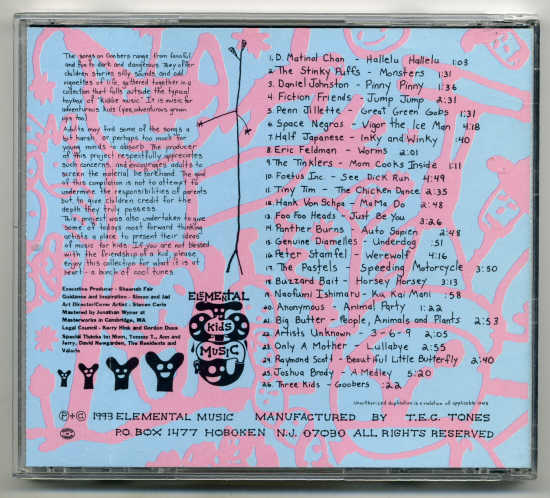 The songs on Goobers range from fanciful
and fun to dark and dangerous. They offer
children stories, silly sounds, and odd
vignettes of life, gathered together in a
collection that falls outside the typical
toybox of "kiddie music". It is music for
adventurous kids (yes, adventurous grown
ups too).
Adults may find some of the songs a
bit harsh, or perhaps too much for
young minds to absorb. The producer
of this project respectfully appreciates
such concerns, and encourages adults to
screen the material beforehand. The goal
of this compilation is not to attempt to
undermine the responsibilities of parents
but to give children credit for the
depth they truly possess.
This project was also undertaken to give
some of todays most forward thinking
artists a place to present their ideas
of music for kids. If you are not blessed
with the friendship of a kid, please
enjoy this collection for what it is at
heart - a bunch of cool tunes.
Executive Producer - Shannah Fair
Guidance and Inspiration - Simon and Jad
Art Director/Cover Artist - Steven Cerio
Mastered by Jonathan Wyner at
Masterworks in Cambridge, MA
Legal Council - Kerry Fink and Gordon Duca
Special Thanks to: Moon, Tommy T., Ann and
Jerry, David Newgarden, The Residents and
Valerie
ELEMENTAL
Kids
MUSIC
1. D. Matinal Chan - Hallelu Hallelu 1:03
2. The Stinky Puffs - Monsters 1:31
3. Daniel Johnston - Pinny Pinny 1:36
4. Fiction Friends - Jump Jump 2:31
5. Penn Jillette - Great Green Gobs 1:31
6. Space Negros - Vigor The Ice Man 4:18
7. Half Japanese - Inky and Winky :40
8. Eric Feldman - Worms 2:01
9. The Tinklers - Mom Cooks Inside 1:11
10. Foetus Inc. - See Dick Run 4:49
11. Tiny Tim - The Chicken Dance 2:35
12. Hank Von Schpa - MaMa Do 2:48
13. Foo Foo Heads - Just Be You 3:26
14. Panther Burns - Auto Sapien 2:48
15. Genuine Diamelles - Underdog :51
16. Peter Stampfel - Werewolf 4:16
17. The Pastels - Speeding Motorcycle 3:50
18. Buzzard Bait - Horsey Horsey 3:13
19. Naofumi Ishimaru - Ku Kai Mani :58
20. Anonymous - Animal Party 1:22
21. Big Butter - People, Animals and Plants 2:53
22. Artists Unknown - 3-6-9 2:05
23. Only A Mother - Lullabye 2:55
24. Raymond Scott - Beautiful Little Butterfly 2:40
25. Joshua Brody - A Medley 5:20
26. Three Kids - Goobers :22
Unauthorized duplication is a violation of applicable laws
Ⓟ+© 1993 ELEMENTAL MUSIC MANUFACTURED BY T.E.C. TONES
P.O. BOX 1477 HOBOKEN N.J. 07030 ALL RIGHTS RESERVED